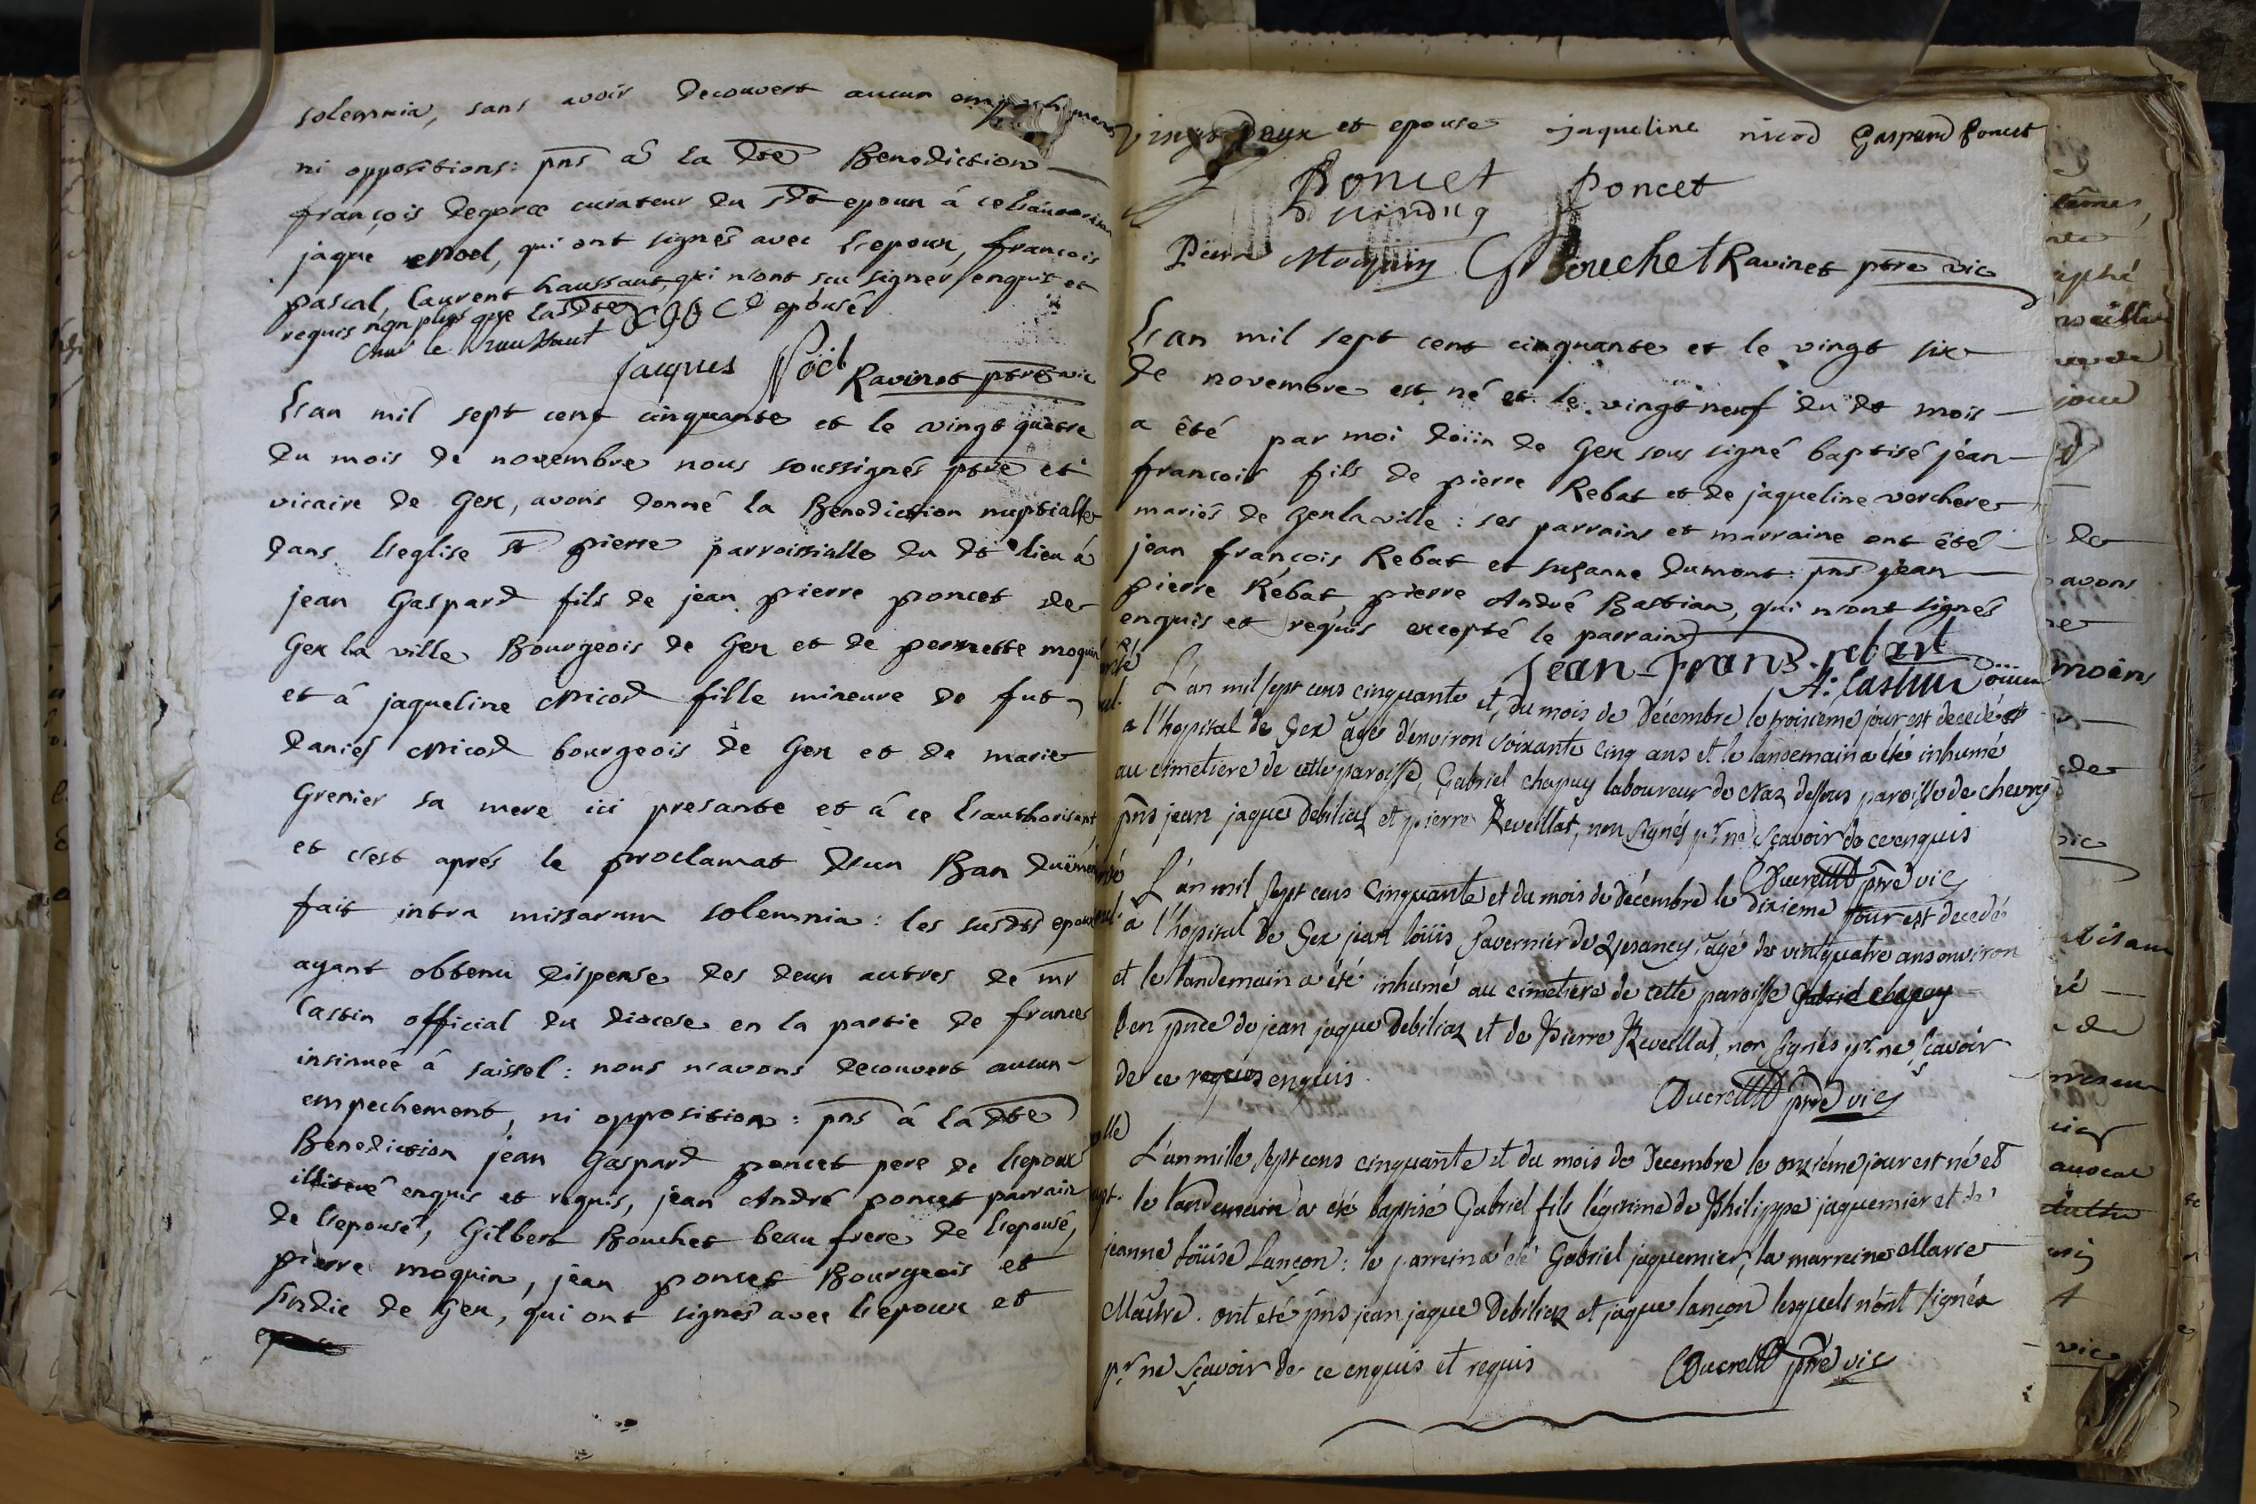 solemnia, sans avoir decouvert aucun empechement
ni oppositions: pns a la dte Benediction
françois degorce curateur du sdt epoux á ce
jaque Noel, qui ont signés avec l'epoux, françois
pascal, laurent haussaut, qui n'ont scu signer enquis et
requis non plus que la dte epouse
jaques Noël Ravinet ptre vic
L'an mil sept cent cinquante et le vingt quatre
du mois de novembre nous soussignés ptre et
vicaire de Gex, avons donné la Benediction nuptialle
dans l'eglise st pierre parroissialle du dt lieu á
jean Gaspard fils de jean pierre poncet de
Gex la ville Bourgeois de Gex et de pernette moquin
et á jaqueline Nicod fille mineure de fut
daniel Nicod bourgeois de Gex et de marie
Grenier sa mere ici presante et á ce l'authorisant
et c'est aprés le proclamat d'un Ban duëment
fait intra missarum solemnia: les susdts epoux
ayant obtenu dispense des deux autres de mr
Castin official du diocese en la partie de france
insinuée á saissel: nous n'avons decouvert aucun
empechement, ni opposition: pns á la dte
Benediction jean Gaspard poncet pere de l'epoux
illiteré enquis et requis, jean André poncet parrain
de l'epouse, Gilbert Bouchet beau frere de l'epouse,
pierre moquin, jean poncet Bourgeois et
sindic de Gex, qui ont signes avec l'epoux et
vingt deux et epouse jaqueline nicod Gaspard Poncet
Poncet Poncet
sindiq
Pierre Moquin G Bouchet Ravinet ptre vic
L'an mil sept cent cinquante et le vingt six
de novembre est né et le vingt neuf du dt mois
a été par moi doïin de Gex sous signé baptisé jean
francois fils de pierre Rebat et de jaqueline verchere
mariés de Gex la ville: ses parrains et marraine ont été
jean françois Rebat et suzanne dumont: pns jean
pierre Rebat pierre André Bastian, qui n'ont signés
enquis et requis excepté le parrain
Jean-Frans. rebart
A: Castin Doïin
L'an mil sept cens cinquante et du mois de décembre le troisieme jour est decedé
a l'hopital de Gex agé d'environ soixante cinq ans et le landemain a été inhumé
au cimetiere de cette paroisse, Gabriel chapuy laboureur de Naz dessous paroisse de chevry
pns jean jaque debiliaz et pierre Reveillat, non signés pr ne sçavoir de ce enquis
Ducrettt ptre vic
L'an mil sept cens Cinquante et du mois de décembre le dixieme jour est decedé
a l'hopital de Gex jean loüis Savernier de Vesancy agé de vintquatre ans environ
et le landemain a été inhumé au cimetiere de cette paroisse Gabriel chapuy
en pnce de jean jaque Debiliaz et de Pierre Reveillat, non signés pr ne sçavoir
de ce requis enquis
Ducrettt ptre vic
L'an mille sept cens cinquante et du mois de Decembre le onzieme jour est né et
le landemain a été baptisé Gabriel fils légitime de Philippe jaquemier et de
jeanne Loüise Lançon: le parrein a été Gabriel jaquemier, la marreine Marie
Maître. ont eté pns jean jaque Debiliaz et jaque lançon lesquels n'ont signés
pr ne sçavoir de ce enquis et requis Ducrettt ptre vic